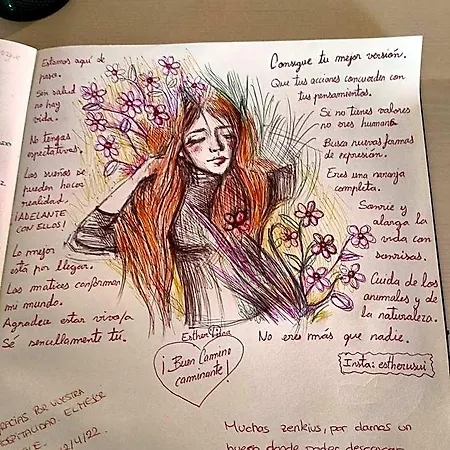 Estamos aquí de
paso.
Sin salud
no hay
vida.
No tengas
expectativas.
Los sueños se
pueden hacer
realidad.
¡ADELANTE
CON ELLOS!
Lo mejor
está por llegar.
Los matices conforman
mi mundo.
Agradece estar vivo/a
Sé sencillamente tú.
Consigue tu mejor versión.
Que tus acciones concuerden con
tus pensamientos.
Si no tienes valores
no eres humano
Busca nuevas formas
de expresión.
Eres una naranja
completa.
Sonríe y
alarga la
vida con
sonrisas.
Cuida de los
animales y de
la naturaleza.
No eres más que nadie.
Esther
¡Buen Camino
caminante!
Insta: estherusui
GRACIAS POR VUESTRA
HOSPITALIDAD. EL MEJOR
2/4/22.
Muchas zenkius, por darnos un
donde poder descansar